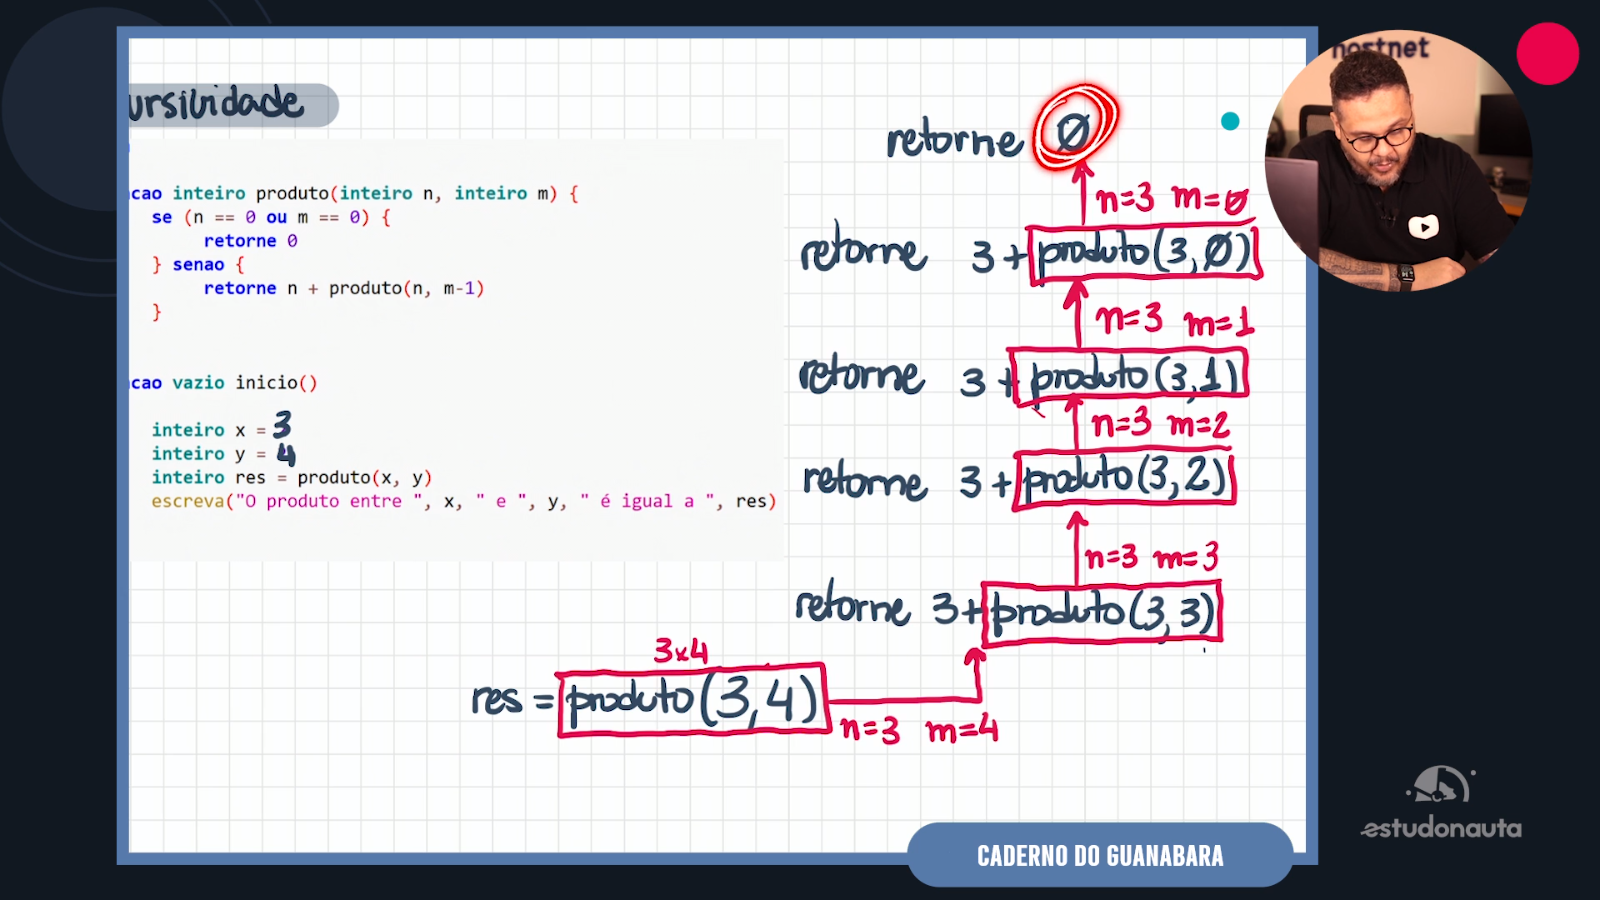 ursividade
cao inteiro produto(inteiro n, inteiro m) {
se (n == 0 ou m == 0) {
retorne 0
} senao {
retorne n + produto(n, m-1)
}
cao vazio inicio()
inteiro x = 3
inteiro y = 4
inteiro res = produto(x, y)
escreva("O produto entre ", x, " e ", y, " é igual a ", res)
retorne 0
n=3 m=0
retorne 3+produto(3,0)
n=3 m=1
retorne 3+produto(3,1)
n=3 m=2
retorne 3+produto(3,2)
n=3 m=3
retorne 3+produto(3,3)
3x4
res = produto(3,4)
n=3 m=4
hostnet
estudonauta
CADERNO DO GUANABARA